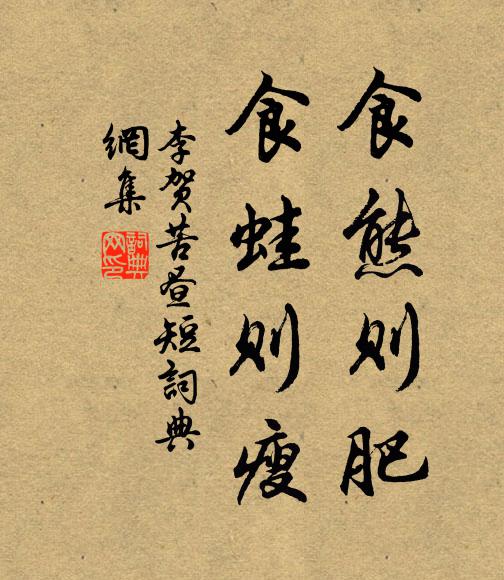 食熊则肥
食蛙则瘦
李贺苦昼短詞典
網集
詞典
网印